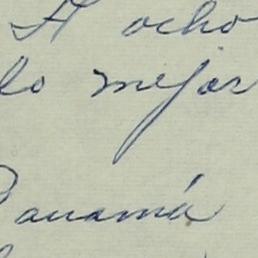 A ocho
lo mejor
Panamá